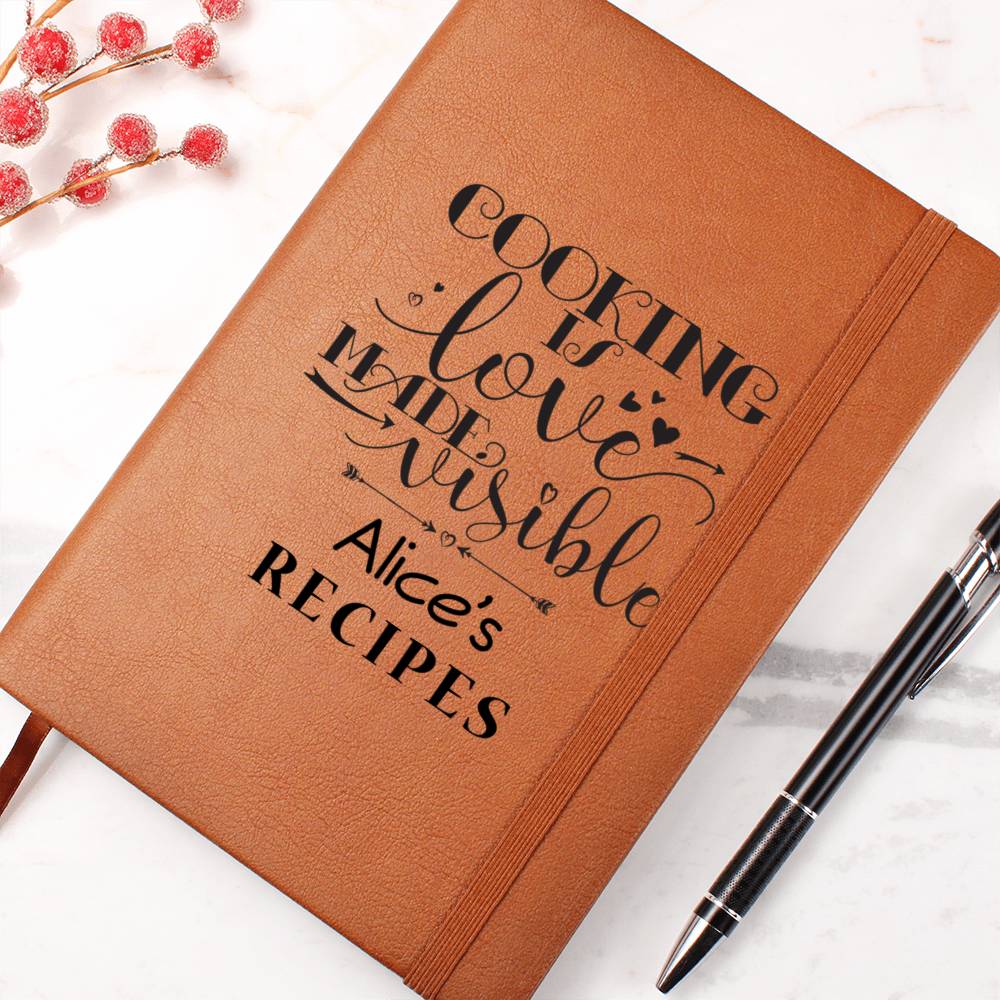 COOKING
IS
love
MADE
visible
Alice's
RECIPES